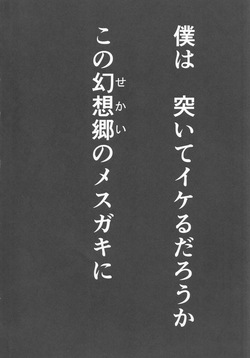 僕は 突いてイケるだろうか
この幻想郷のメスガキに
せかい